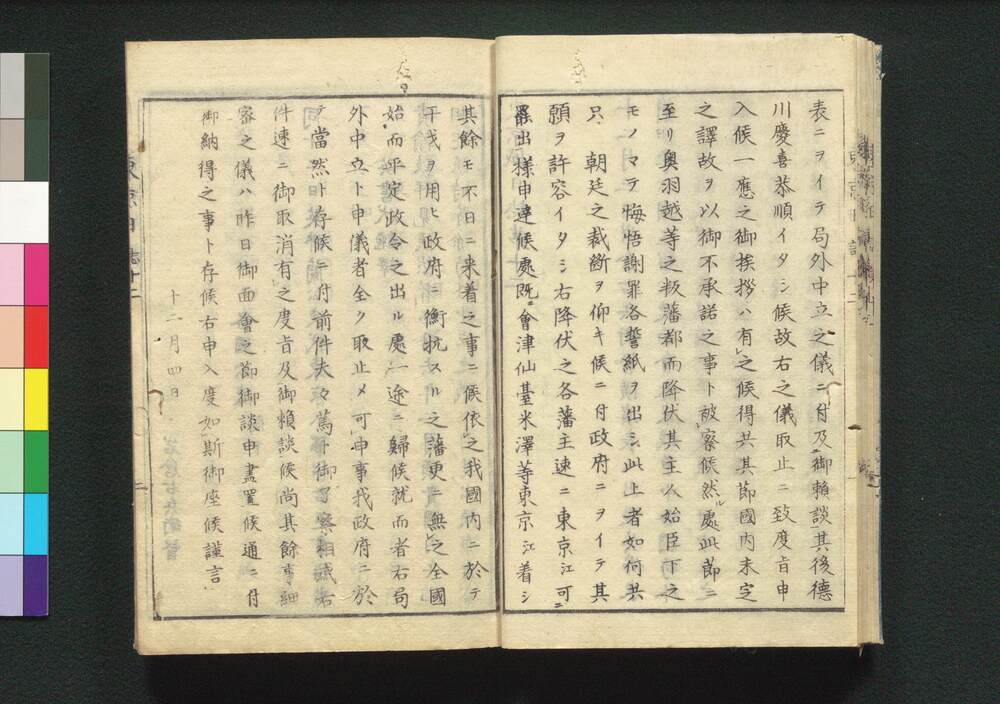 表ニヲイテ局外中立之儀ニ付及御頼談其後德
川慶喜恭順イタシ候故右之儀取止ニ致度旨申
入候一應之御挨拶ハ有之候得共其節國内未定
之譯故ヲ以御不承諾之事ト被察候然ル處此節ニ
至リ奥羽越等之叛藩都而降伏其主人始臣下之
モノマテ悔悟謝罪各誓紙ヲ出シ此上者如何共
只朝廷之裁斷ヲ仰キ候ニ付政府ニヲイテ其
願ヲ許容イタシ右降伏之各藩主速ニ東京江可
罷出様申達候處既ニ會津仙臺米澤等東京江着シ
其餘モ不日ニ来着之事ニ候依之我國内ニ於テ
干戈ヲ用ヒ政府ニ衡抗スル之藩更ニ無之全國
始而平定政令之出ル處一途ニ歸候就而者右局
外中立ト申儀者全ク取止メ可申事我政府ニ於
テ當然ト存候ニ付前件夫々篤ト御察相成右
件速ニ御取消有之度旨及御頼談候尚其餘事細
密之儀ハ昨日御面會之節御談申盡置候通ニ付
御納得之事ト存候右申入度如斯御座候謹言
十二月四日
東京日誌十二